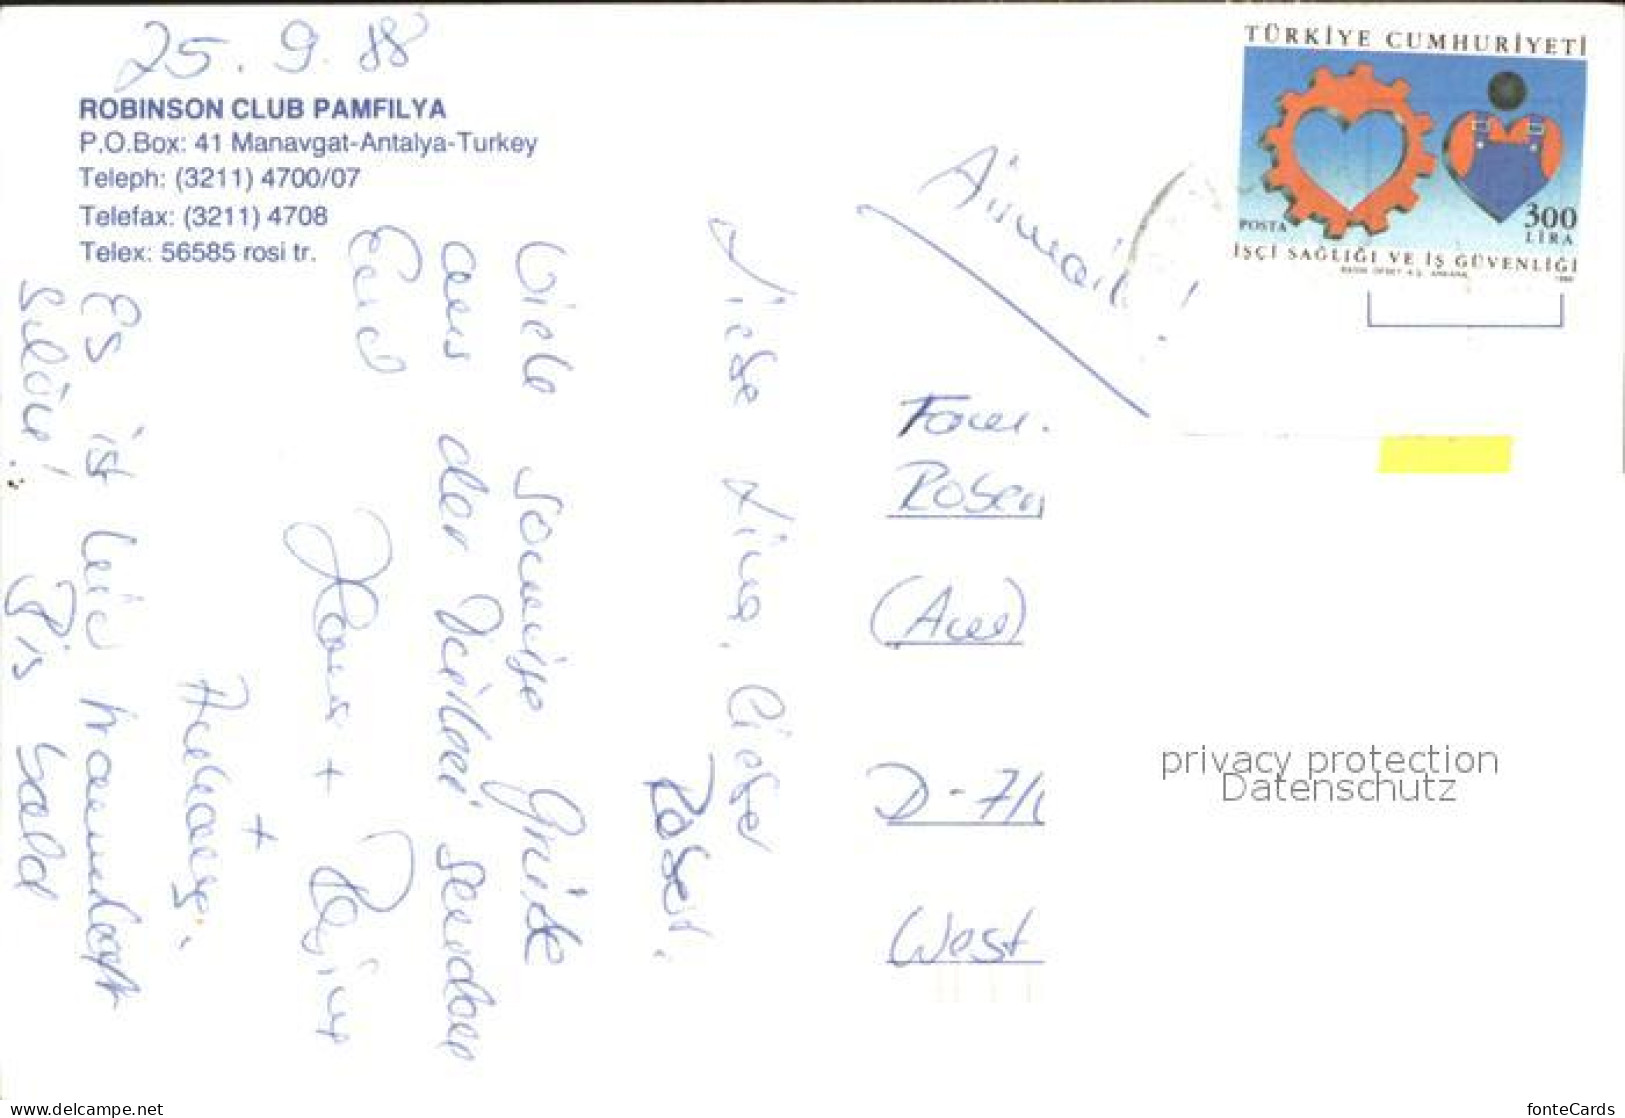 25. 9. 88
ROBINSON CLUB PAMFILYA
P.O.Box: 41 Manavgat-Antalya-Turkey
Teleph: (3211) 4700/07
Telefax: (3211) 4708
Telex: 56585 rosi tr.
TÜRKİYE CUMHURİYETİ
POSTA
300
LİRA
İŞÇİ SAĞLIĞI VE İŞ GÜVENLİĞİ
Airmail!
Liebe Lina, lieber
Robert.
Viele sonnige Grüße
aus der Türkei senden
Euch
Hans + Regine
+
Es ist hier traumhaft
schön! Bis bald
Fam.
Rosen
D-7
West
privacy protection
Datenschutz
www.delcampe.net
fonteCards